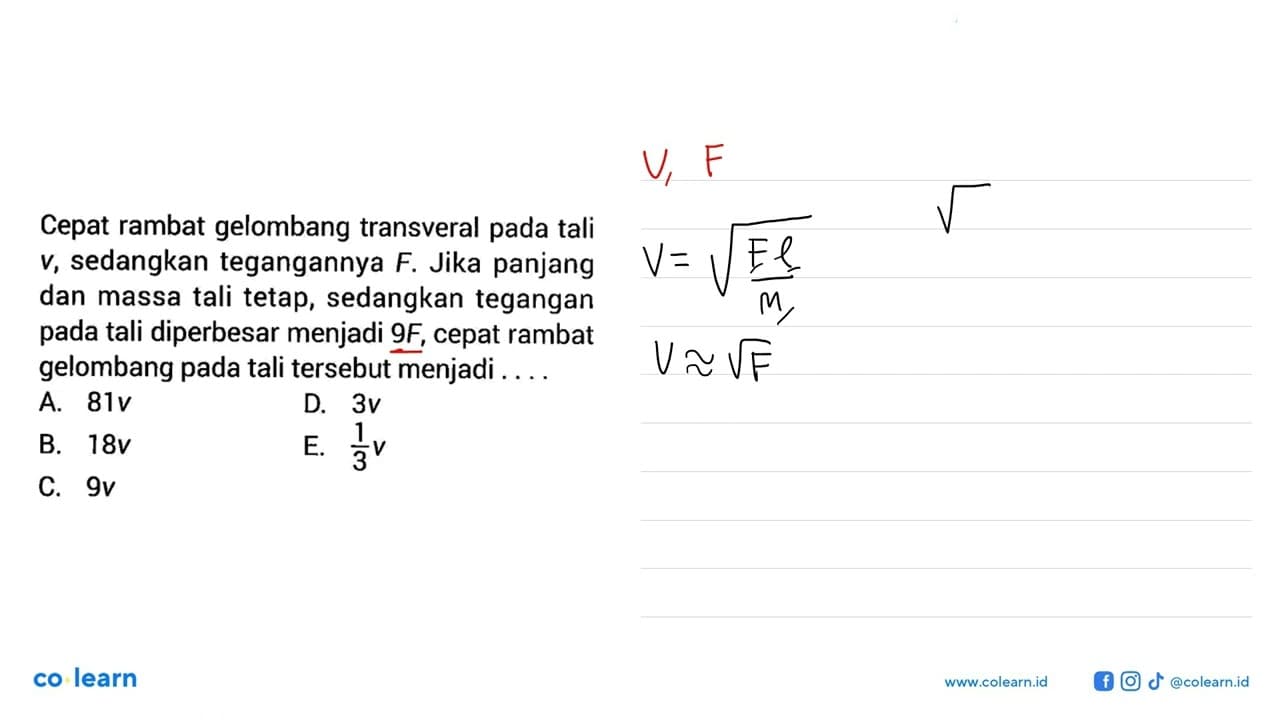 Cepat rambat gelombang transveral pada tali
v, sedangkan tegangannya F. Jika panjang
dan massa tali tetap, sedangkan tegangan
pada tali diperbesar menjadi 9F, cepat rambat
gelombang pada tali tersebut menjadi . . . .
A. 81v
D. 3v
B. 18v
E. 1/3 v
C. 9v
V, F
V = √(Fℓ/m)
√
V ≈ √F
co learn
www.colearn.id
@colearn.id